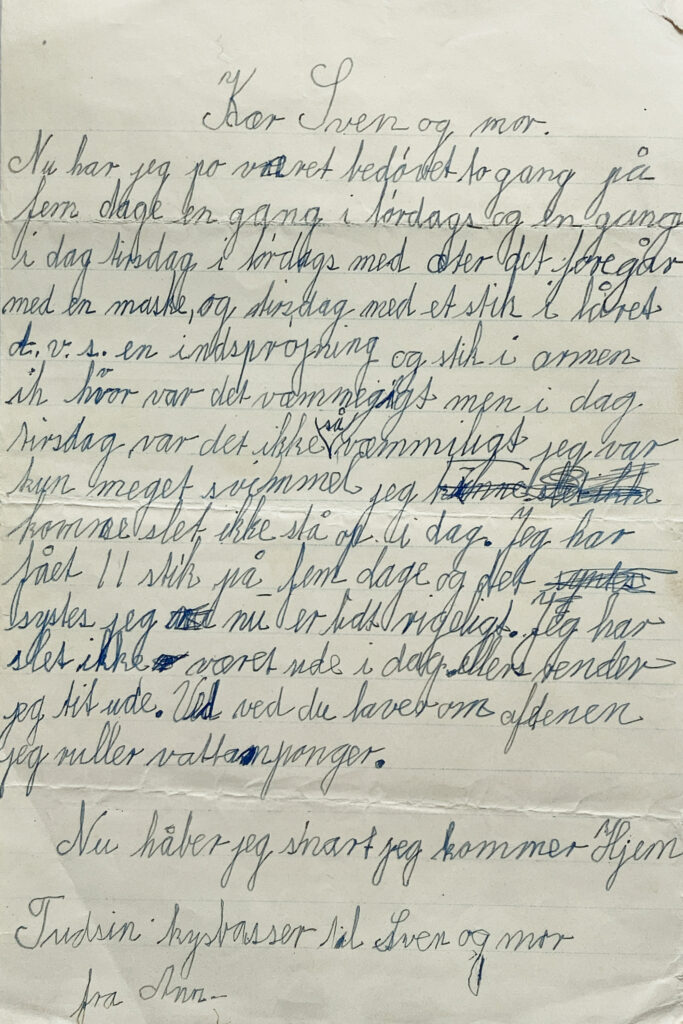 Kær Sven og mor.
Nu har jeg po været bedövet to gang på
fem dage en gang i lördags og en gang
i dag tirsdag i lördags med æter det foregår
med en maske, og tirsdag med et stik i låret
d.v.s. en indspröjning og stik i armen
ih hvor var det væmmegigt men i dag
tirsdag var det ikke så væmmiligt jeg var
kun meget svimmel jeg
komme slet ikke stå op i dag. Jeg har
fået 11 stik på fem dage og det
systes jeg nu er lidt rigeligt. Jeg har
slet ikke været ude i dag. ellers render
jeg tit ude. Ved ved du laver om aftenen
jeg ruller vattamponger.
Nu håber jeg snart jeg kommer Hjem
Tudsin kysbasser til Sven og mor
fra Ann-